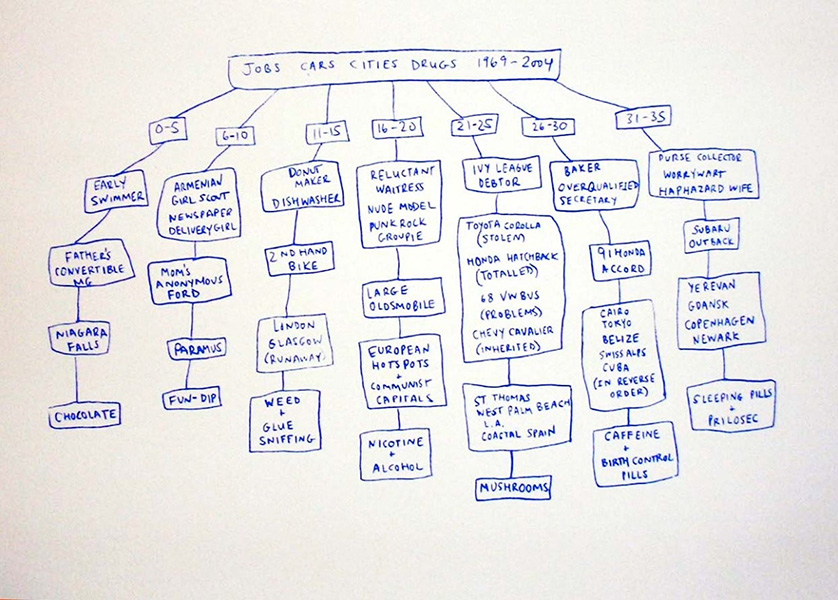 JOBS CARS CITIES DRUGS 1969-2004
0-5
EARLY
SWIMMER
FATHER'S
CONVERTIBLE
MG
NIAGARA
FALLS
CHOCOLATE
6-10
ARMENIAN
GIRL SCOUT
NEWSPAPER
DELIVERY GIRL
MOM'S
ANONYMOUS
FORD
PARAMUS
FUN-DIP
11-15
DONUT
MAKER
DISHWASHER
2ND HAND
BIKE
LONDON
GLASGOW
(RUNAWAY)
WEED
+
GLUE
SNIFFING
16-20
RELUCTANT
WAITRESS
NUDE MODEL
PUNK ROCK
GROUPIE
LARGE
OLDSMOBILE
EUROPEAN
HOTSPOTS
+
COMMUNIST
CAPITALS
NICOTINE
+
ALCOHOL
21-25
IVY LEAGUE
DEBTOR
TOYOTA COROLLA
(STOLEN)
HONDA HATCHBACK
(TOTALLED)
68 VW BUS
(PROBLEMS)
CHEVY CAVALIER
(INHERITED)
ST THOMAS
WEST PALM BEACH
L.A.
COASTAL SPAIN
MUSHROOMS
26-30
BAKER
OVERQUALIFIED
SECRETARY
91 HONDA
ACCORD
CAIRO
TOKYO
BELIZE
SWISS ALPS
CUBA
(IN REVERSE
ORDER)
CAFFEINE
+
BIRTH CONTROL
PILLS
31-35
PURSE COLLECTOR
WORRYWART
HAPHAZARD WIFE
SUBARU
OUTBACK
YEREVAN
GDANSK
COPENHAGEN
NEWARK
SLEEPING PILLS
+
PRILOSEC